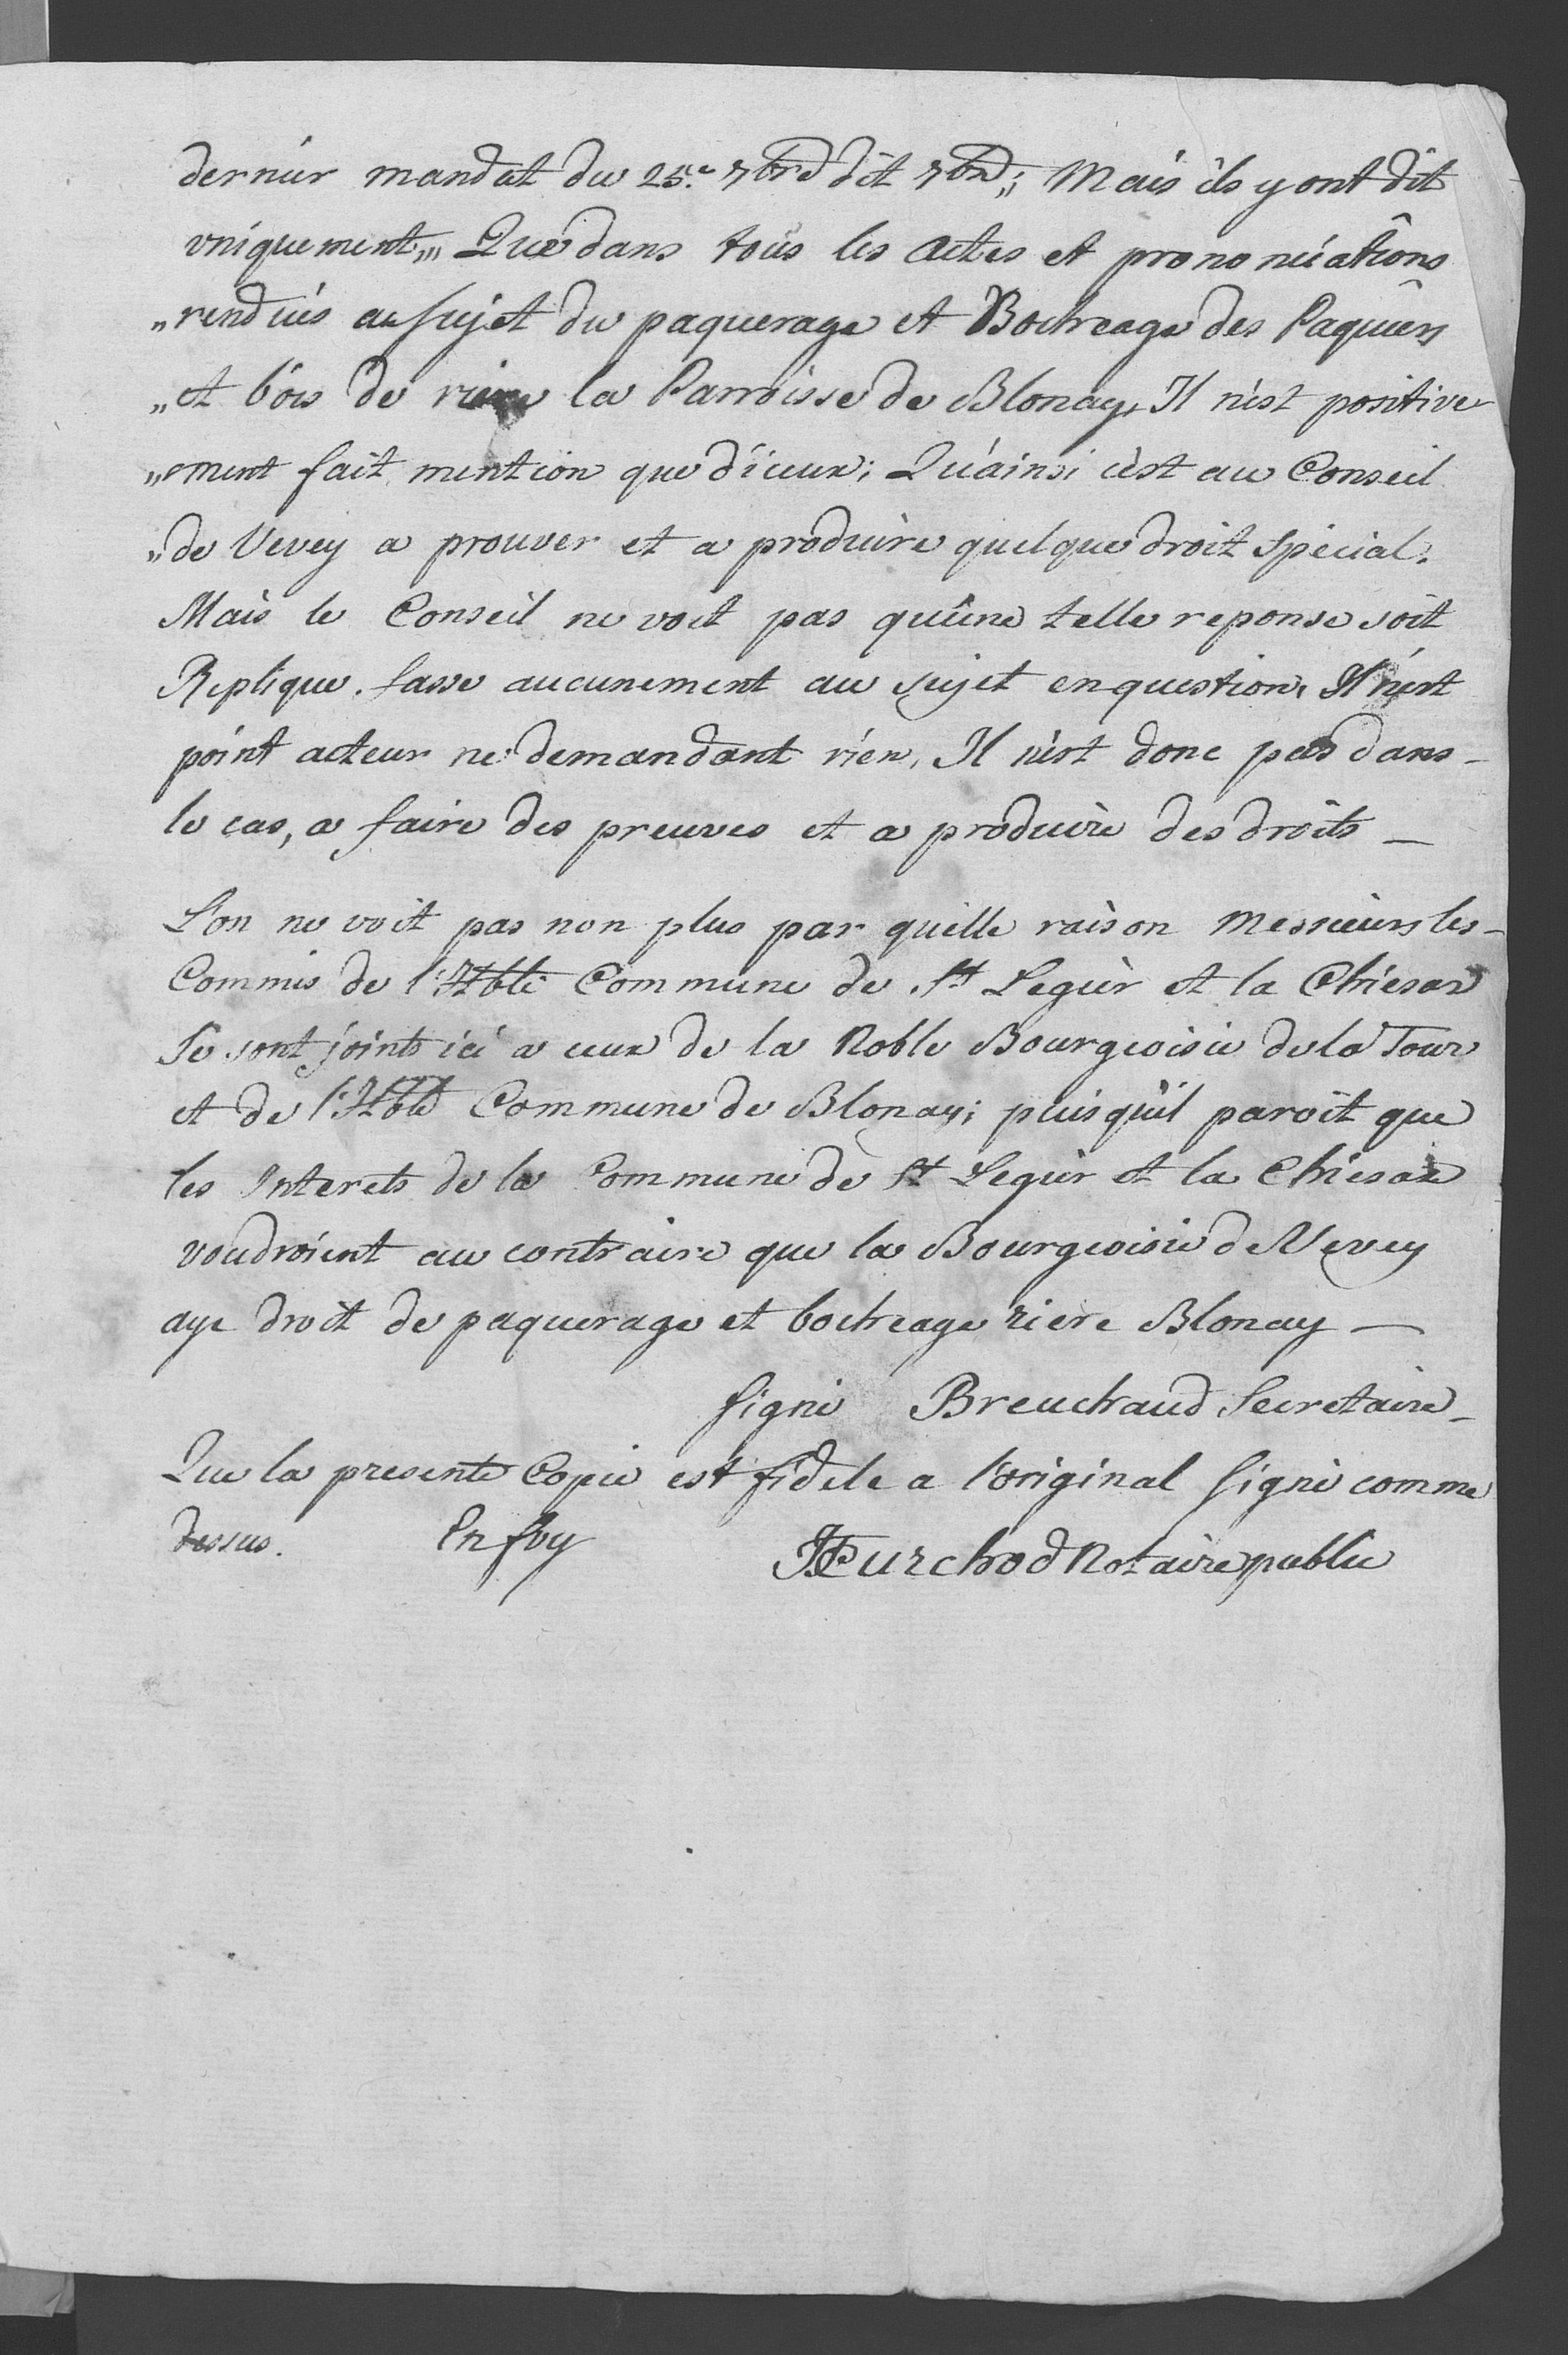 dernier mandat du 25.e 7bre dit 7bre„; Mais ils y ont dit
vniquement„„ Que dans tous les Actes et prononciations
„rendues au sujet du paquerage et Bochreage des Paquiers
„et bois de riere la Parroisse de Blonay, Il n'est positive
„ement fait mention que d'iceux; Qu'ainsi c'est au Conseil
„de Vevey a prouver et a produire quelque droit special.
Mais le Conseil ne voit pas qu'une telle reponse soit
Replique. fasse aucunement au sujet en question, Il n'est
point acteur ne demandant rien, Il n'est donc pas dans_
le cas, a faire des preuves et a produire des droits _
L'on ne voit pas non plus par quelle raison Messieurs les_
Commis de l'Hble Commune de St Legier et la Chiesaz
Se sont joints ici a ceux de la Noble Bourgeoisie de la Tour
et de l'Hble Commune de Blonay; puisqu'il paroit que
les Interets de la Commune de St Legier et la Chiesaz
voudroient au contraire que la Bourgeoisie de Vevey
aye droit de paquerage et bochreage riere Blonay _
Signé Breuchaud Secretaire_
Que la presente Copie est fidele a l'original Signé comme
dessus. En foy Curchod Notaire public